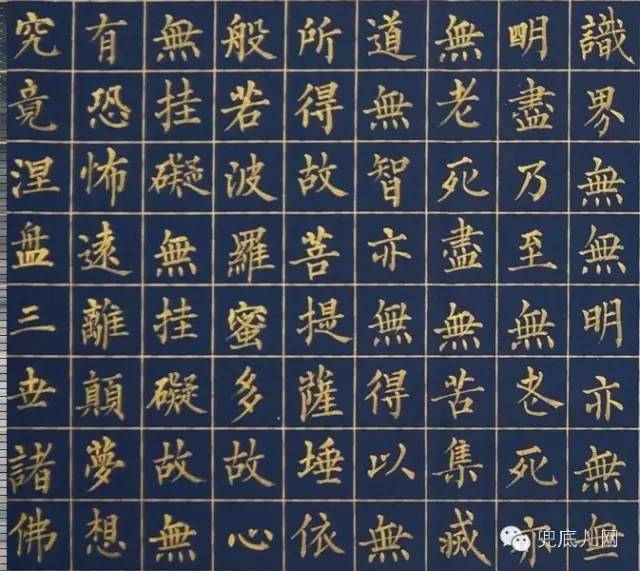 識界無無明亦無無
明盡乃至無老死亦
無老死盡無苦集滅
道無智亦無得以無
所得故菩提薩埵依
般若波羅蜜多故心
無挂礙無挂礙故無
有恐怖遠離顛夢想
究竟涅盤三世諸佛
兜底儿网